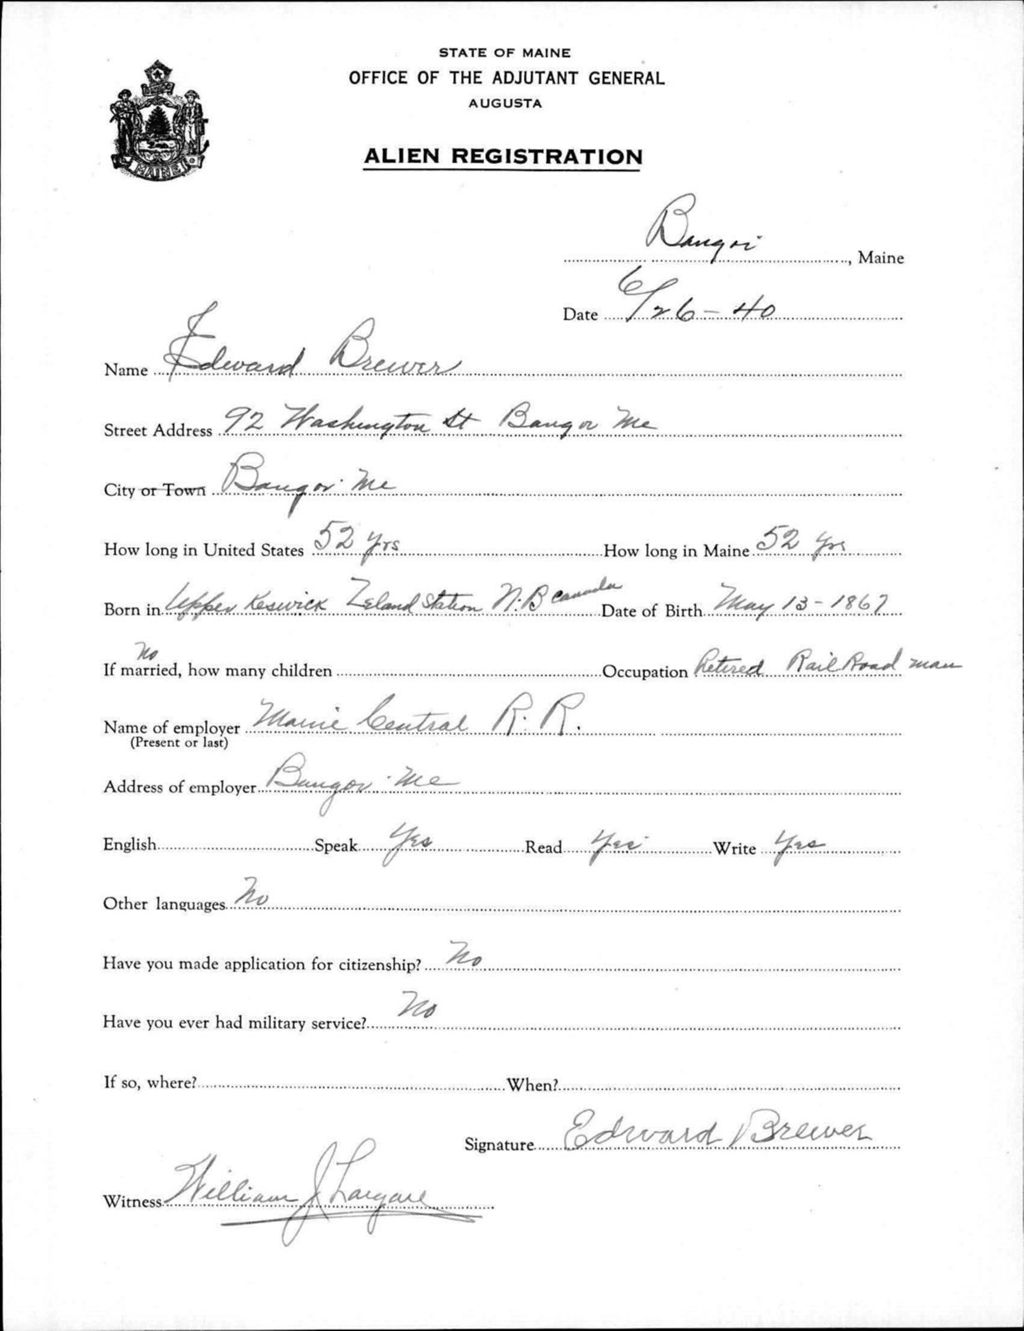 STATE OF MAINE
OFFICE OF THE ADJUTANT GENERAL
AUGUSTA
ALIEN REGISTRATION
MAINE
Bangor, Maine
Date 6/26-40
Name Edward Brewer
Street Address 92 Washington St Bangor Me
City or Town Bangor Me
How long in United States 52 yrs How long in Maine 52 yrs
Born in Upper Keswick Zeland Station N.B Canada Date of Birth May 13-1867
No
If married, how many children Occupation Retired Rail Road man
Name of employer Maine Central R. R.
(Present or last)
Address of employer Bangor Me
English Speak Yes Read Yes Write Yes
Other languages No
Have you made application for citizenship? No
Have you ever had military service? No
If so, where? When?
Signature Edward Brewer
Witness William J